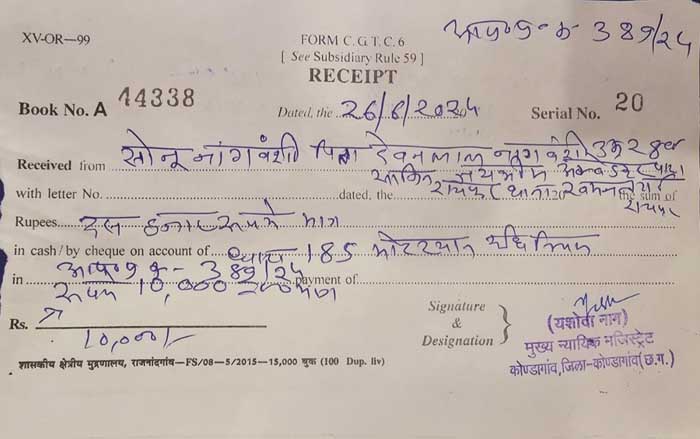 XV-OR—99
FORM C. G. T. C. 6
आप०प्र०क्र- 389/24
[ See Subsidiary Rule 59 ]
RECEIPT
Book No. A 44338
Dated, the 26/6/2024
Serial No. 20
Received from सोनू नागवंशी पिता देवनलाल नागवंशी उम्र 28 वर्ष
with letter No. dated, the the sum of
रायपुर
Rupees दस हजार रूपये मात्र
in cash/by cheque on account of धारा 185 मोटरयान अधिनियम
in आप०प्र०क्र- 389/24 payment of
रूपये 10,000
Rs. 10,000/-
Signature
&
Designation
(यशोदा नाग)
मुख्य न्यायिक मजिस्ट्रेट
कोण्डागांव, जिला-कोण्डागांव(छ.ग.)
शासकीय क्षेत्रीय मुद्रणालय, राजनांदगांव—FS/08—5/2015—15,000 बुक (100 Dup. liv)